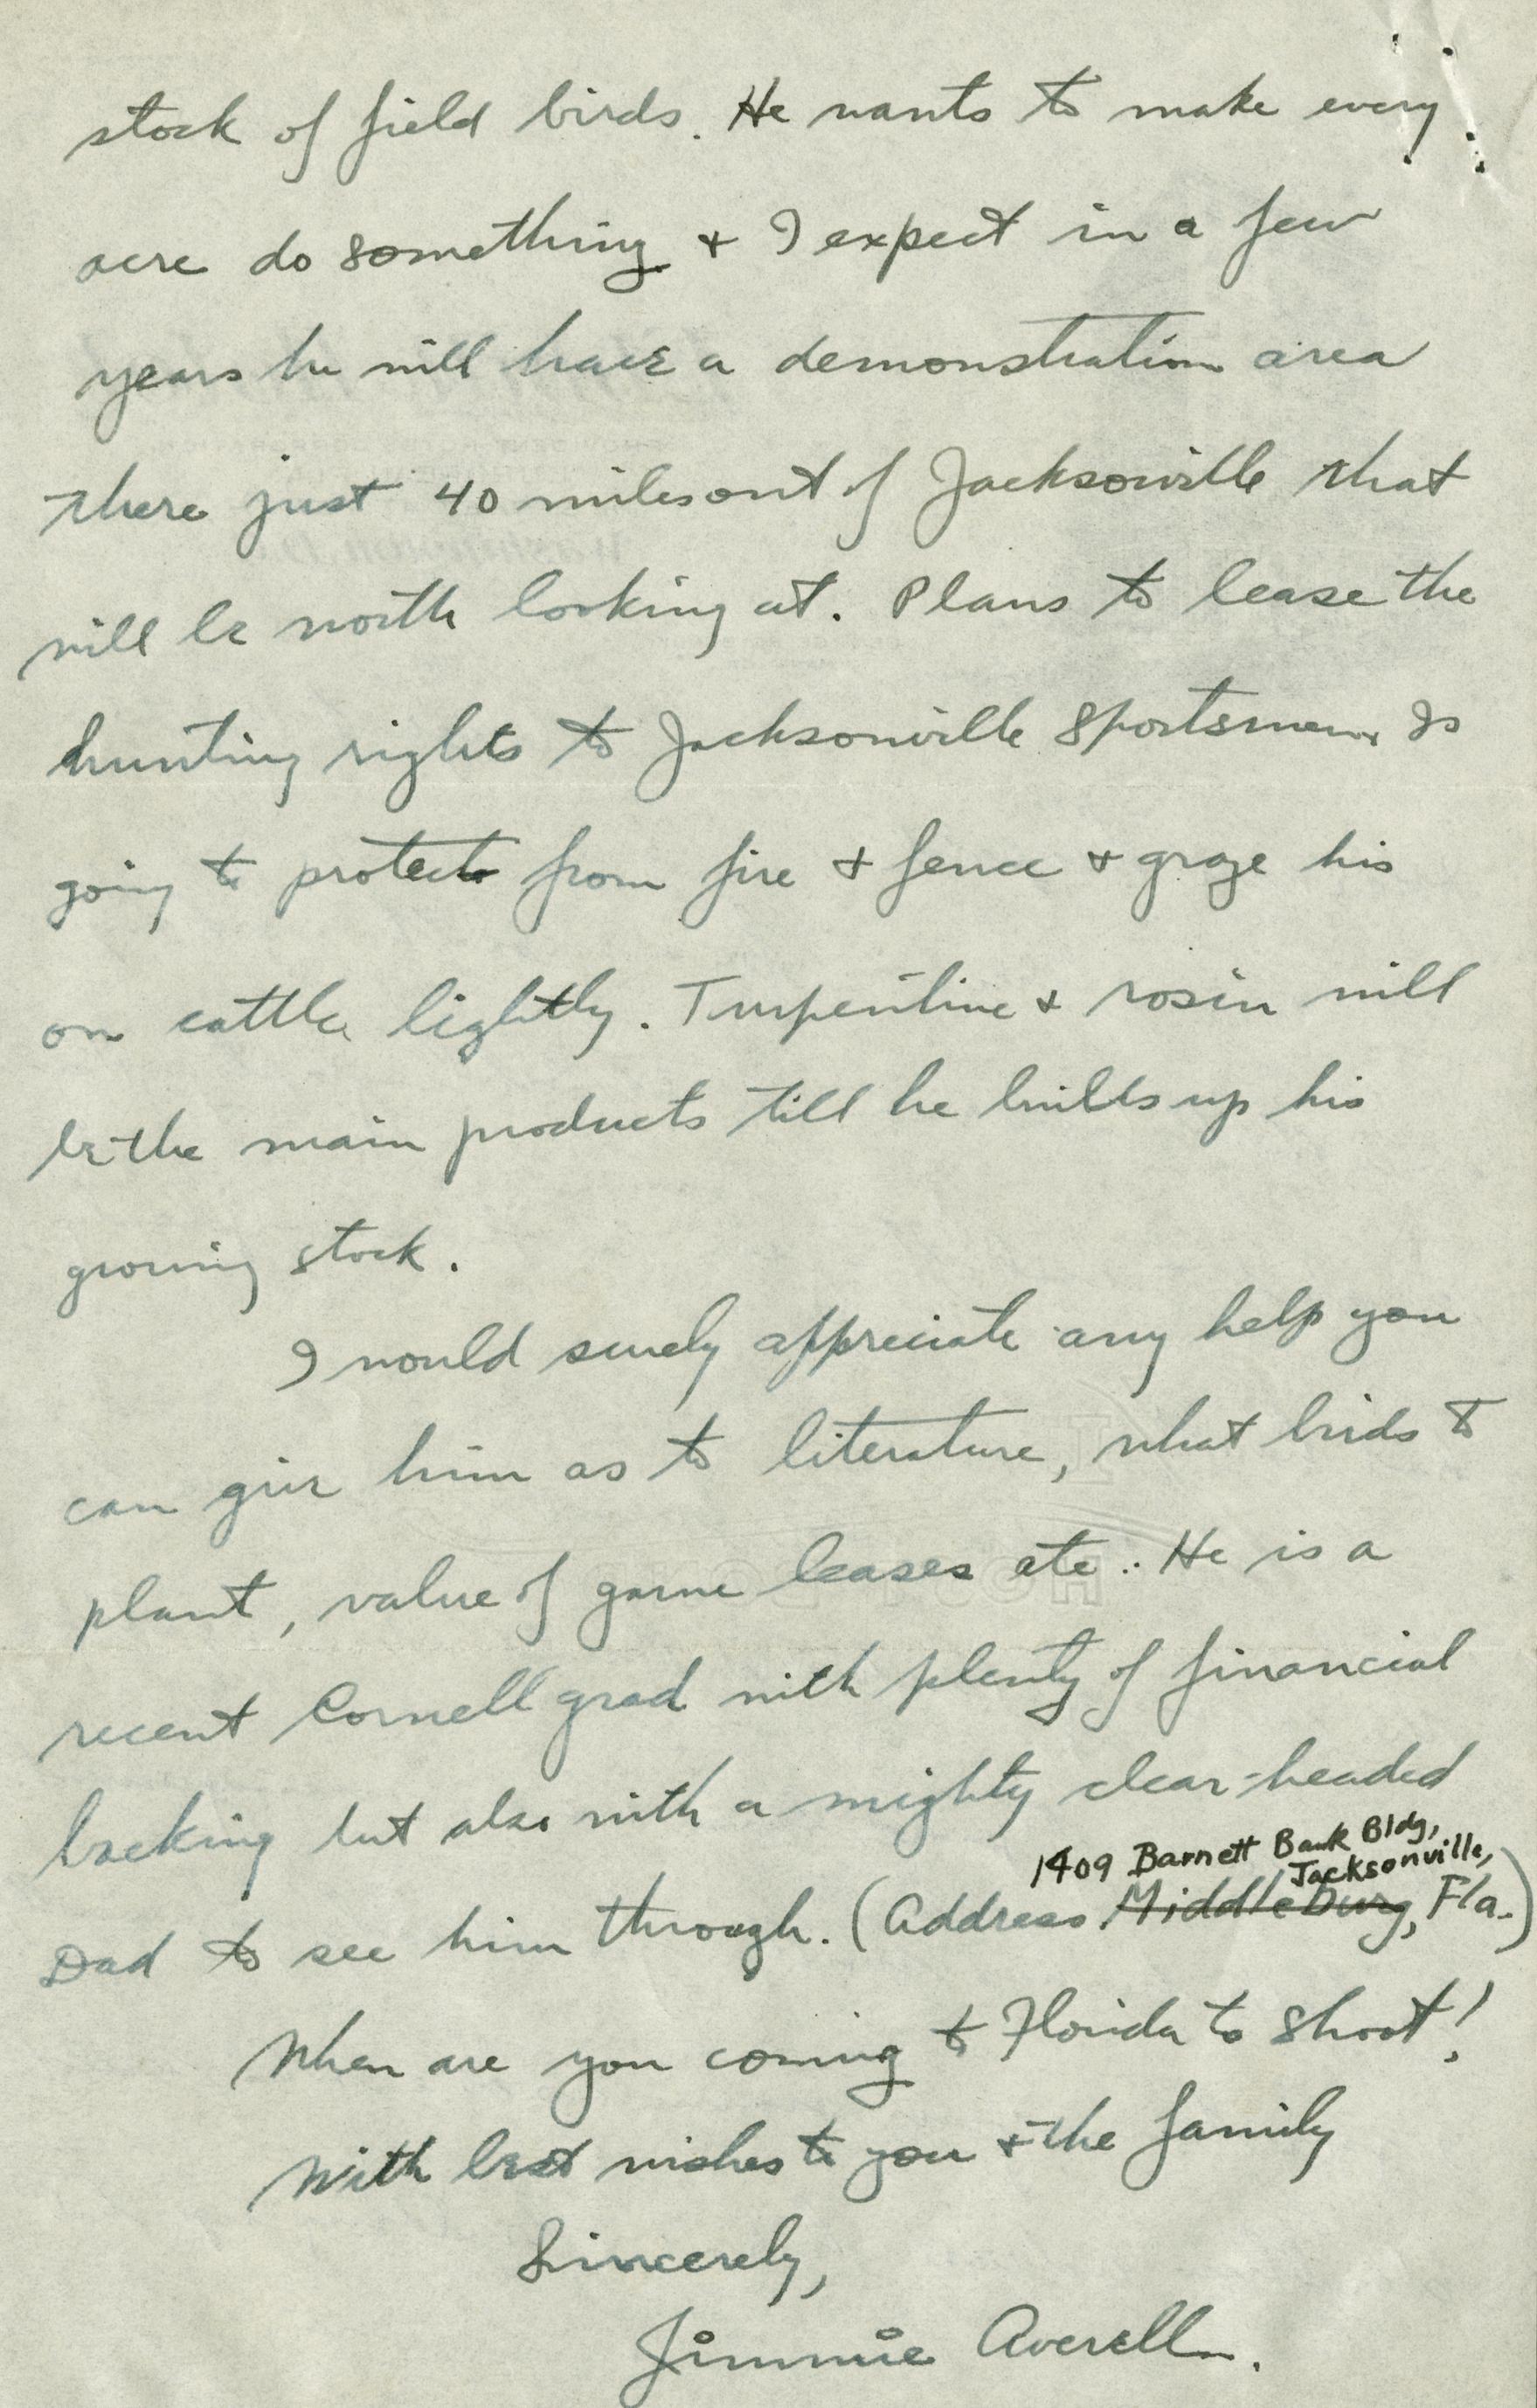 stock of field birds. He wants to make every
acre do something & I expect in a few
years he will have a demonstration area
there just 40 miles out of Jacksonville that
will be worth looking at. Plans to lease the
hunting rights to Jacksonville Sportsmen. Is
going to protect from fire & fence & graze his
own cattle lightly. Turpentine & rosin will
be the main products till he builds up his
growing stock.
I would surely appreciate any help you
can give him as to literature, what birds to
plant, value of game leases etc.. He is a
recent Cornell grad with plenty of financial
backing but also with a mighty clear-headed
1409 Barnett Bank Bldg,
Jacksonville,
Dad to see him through. (Address Middleburg, Fla.)
When are you coming to Florida to shoot!
With best wishes to you & the family
Sincerely,
Jimmie Averell.